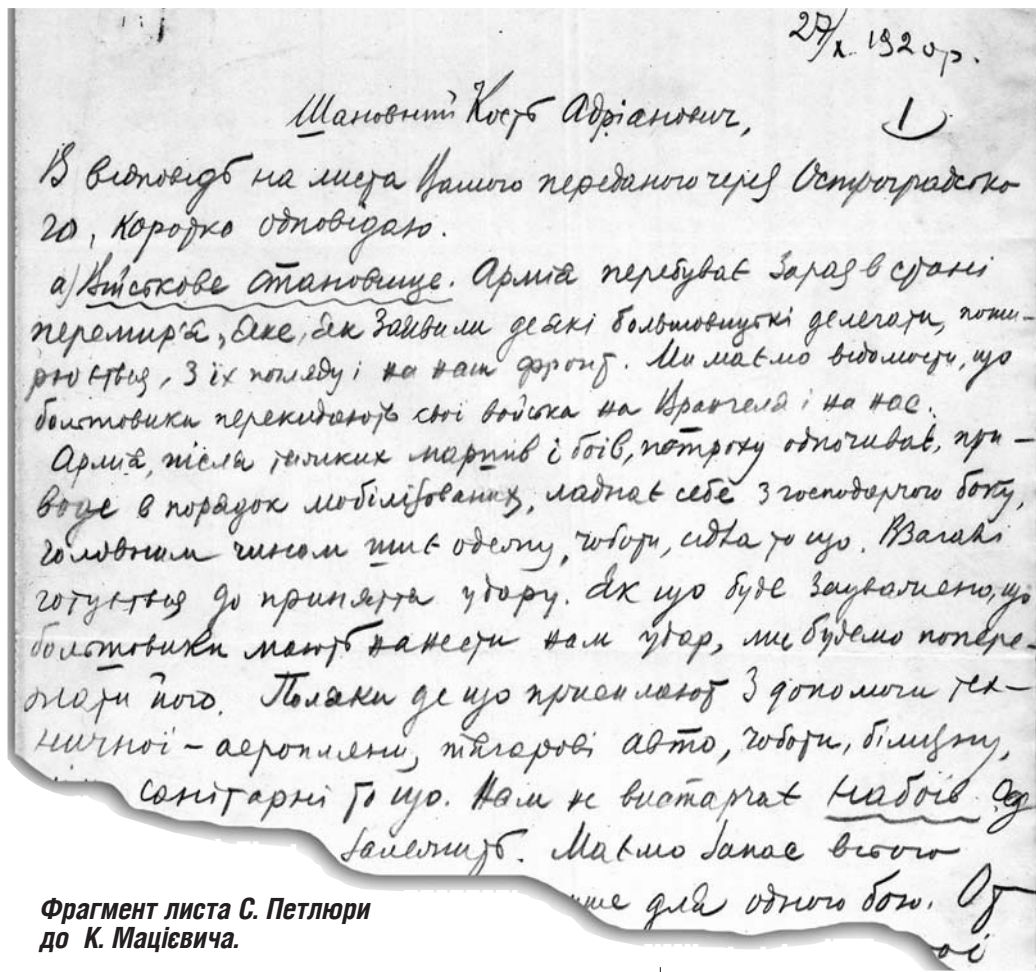 27/X. 1920 р.
Шановний Кость Адріанович,
1
В відповідь на листа Вашого переданого через Остроградсько
го, коротко одповідаю.
а) Військове становище. Армія перебуває зараз в стані
перемир'я, яке, як заявили деякі большовицькі делегати, поши-
рюється, з їх погляду і на наш фронт. Ми маємо відомости, що
большовики перекидають свої війська на Врангеля і на нас.
Армія, після тяжких маршів і боїв, потроху одпочиває, при-
воде в порядок мобілізованих, ладнає себе з господарчого боку,
головним чином шиє одежу, чоботи, сідла то що. Взагалі
готується до приняття удару. Як що буде зауважено, що
большовики мають нанести нам удар, ми будемо попере-
жати його. Поляки де що присилають з допомоги тех-
ничної – аеропляни, тягарові авто, чоботи, білизну,
санітарні то що. Нам не вистарчає набоїв. Од
залежить. Маємо запас всього
для одного бою. От
Фрагмент листа С. Петлюри
до К. Мацієвича.